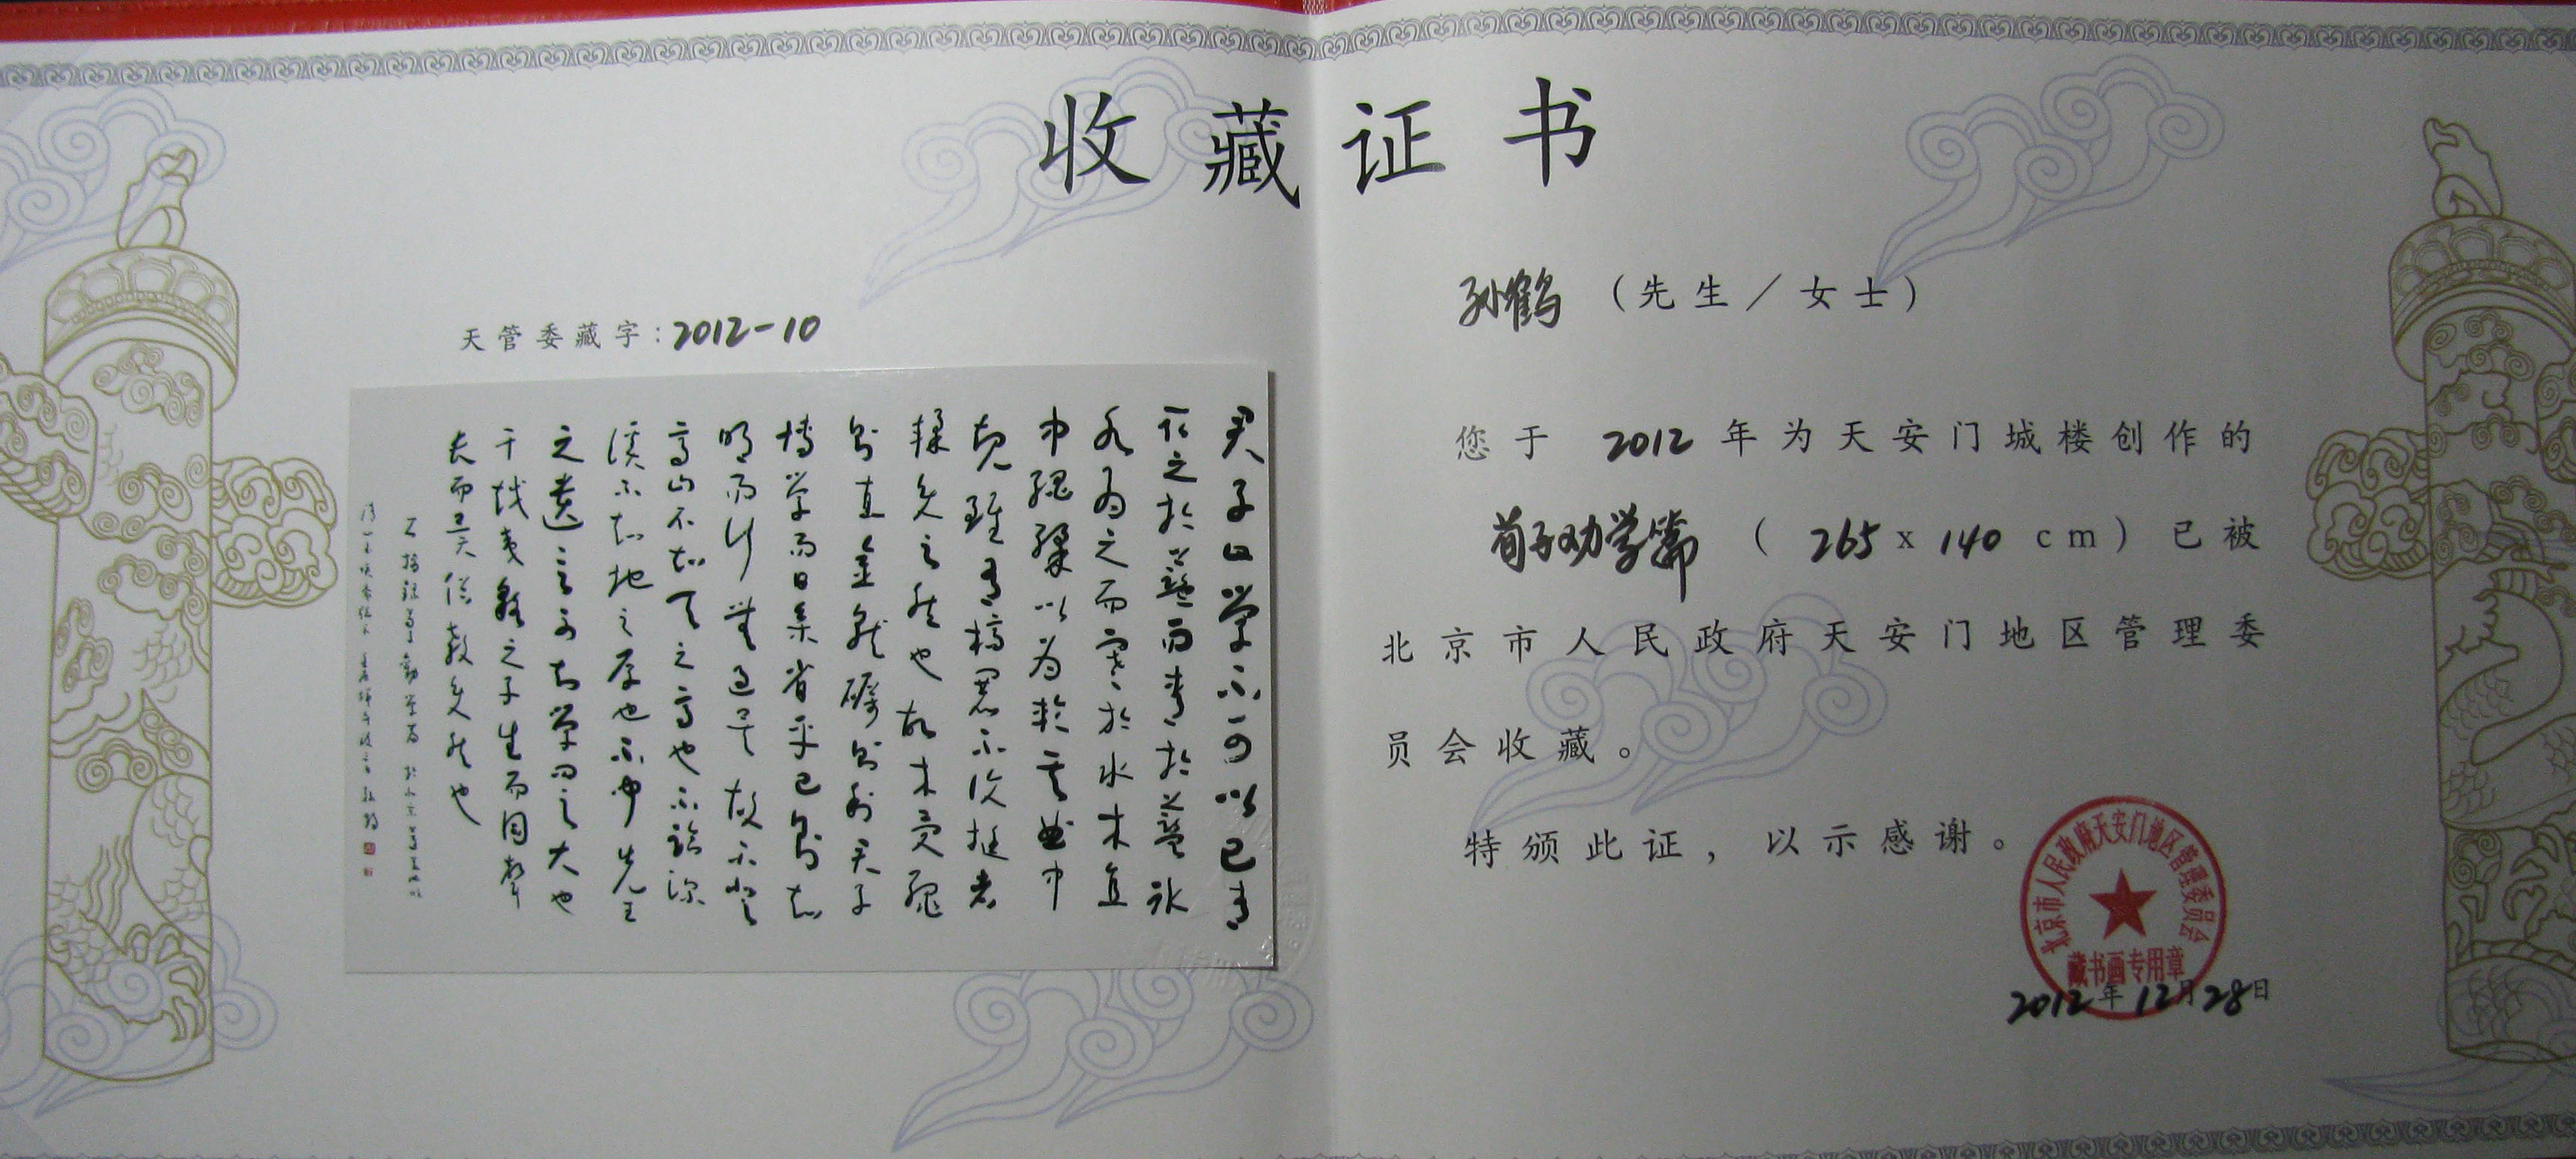 收藏证书
天管委藏字：2012-10
君子曰学不可以已青
取之於蓝而青於蓝冰
水为之而寒於水木直
中绳輮以为轮其曲中
规虽有槁暴不复挺者
輮使之然也故木受绳
则直金就砺则利君子
博学而日参省乎己则知
明而行无过矣故不登
高山不知天之高也不临深
溪不知地之厚也不闻先王
之遗言不知学问之大也
干越夷貉之子生而同声
长而异俗教使之然也
孙鹤（先生／女士）
您于 2012 年为天安门城楼创作的
荀子劝学篇（265 x 140 cm）已被
北京市人民政府天安门地区管理委
员会收藏。
特颁此证，以示感谢。
北京市人民政府天安门地区管理委员会
藏书画专用章
2012年12月28日